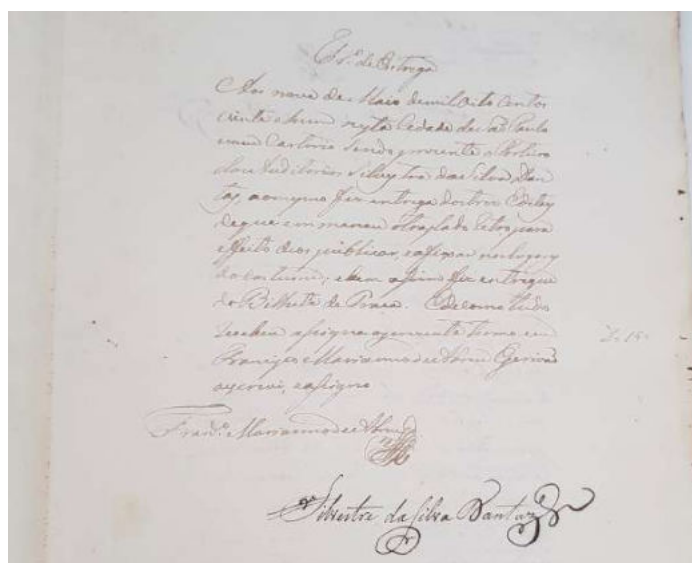 Tr.º de Entrega
Aos nove de Maio de mil Oito centos
e vinte e hum nesta Cidade de Saõ Paulo
em meu Cartorio sendo prezente o Porteiro
dos Auditorios Silvestre da Silva Dan
tas, ao mesmo fiz entrega dos tres Editaes
de que em manou o traslado retro para
effeito de os publicar, e afixar nos lugares
do costume; e bem assim fiz entregue
do Bilhete de Praça. E de como tudo
recebeu assigna o prezente termo eu
Francisco Marianno de Abreu Escrivaõ
o escrevi, e assigno
Fran.co Marianno de Abreu
Silvestre da Silva Dantas